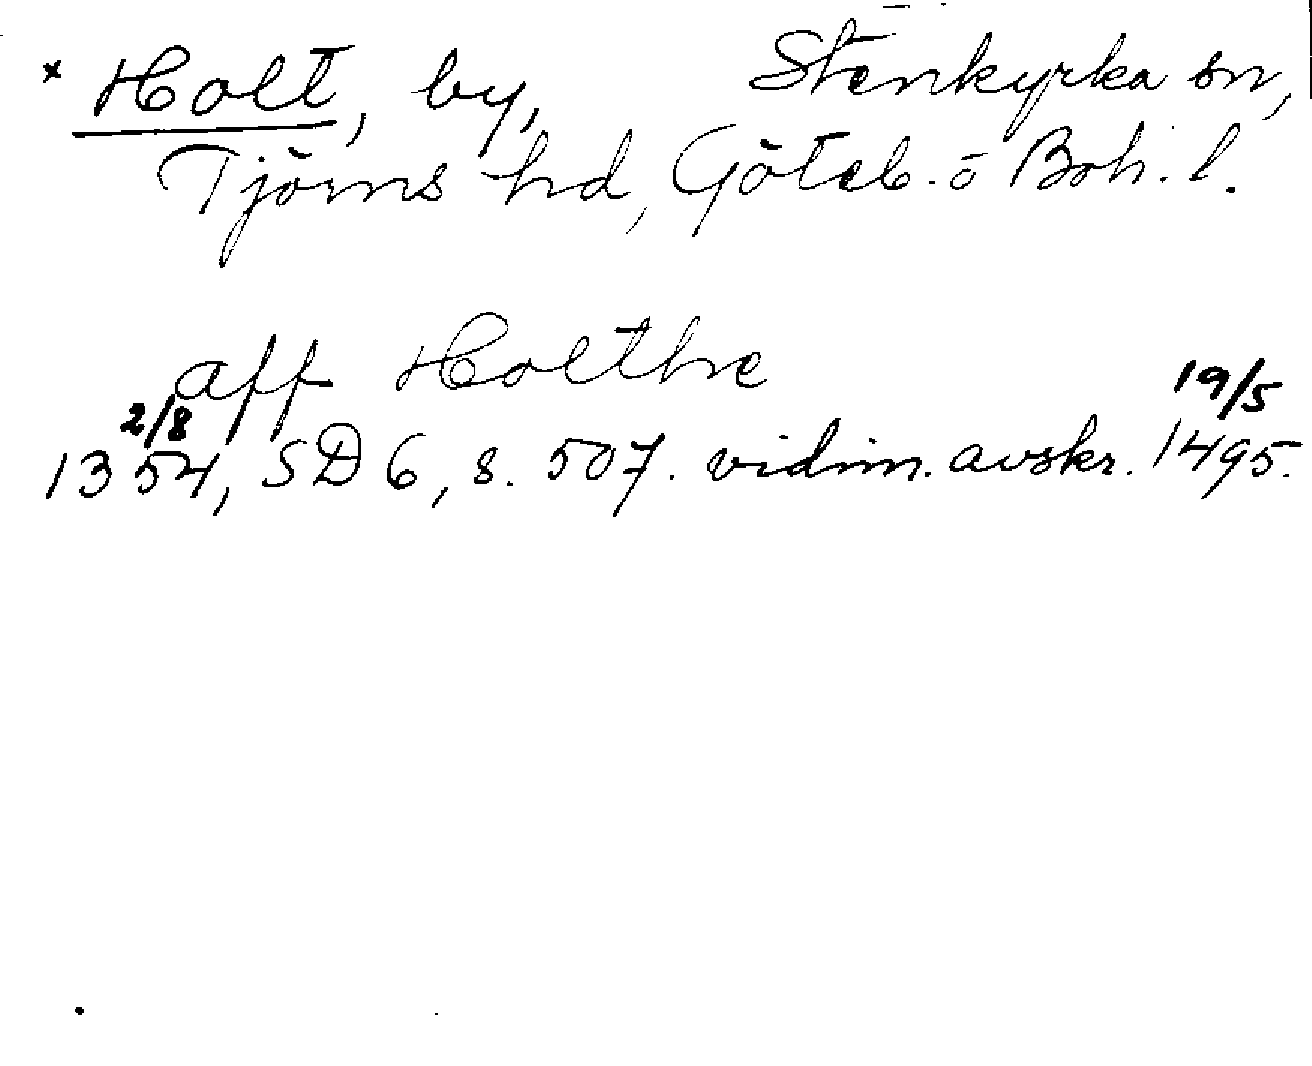 × Holt, by, Stenkyrka sn,
Tjörns hd, Göteb. o Boh. l.
aff Holthe
2/8 19/5
1354, SD 6, s. 507. vidim. avskr. 1495.